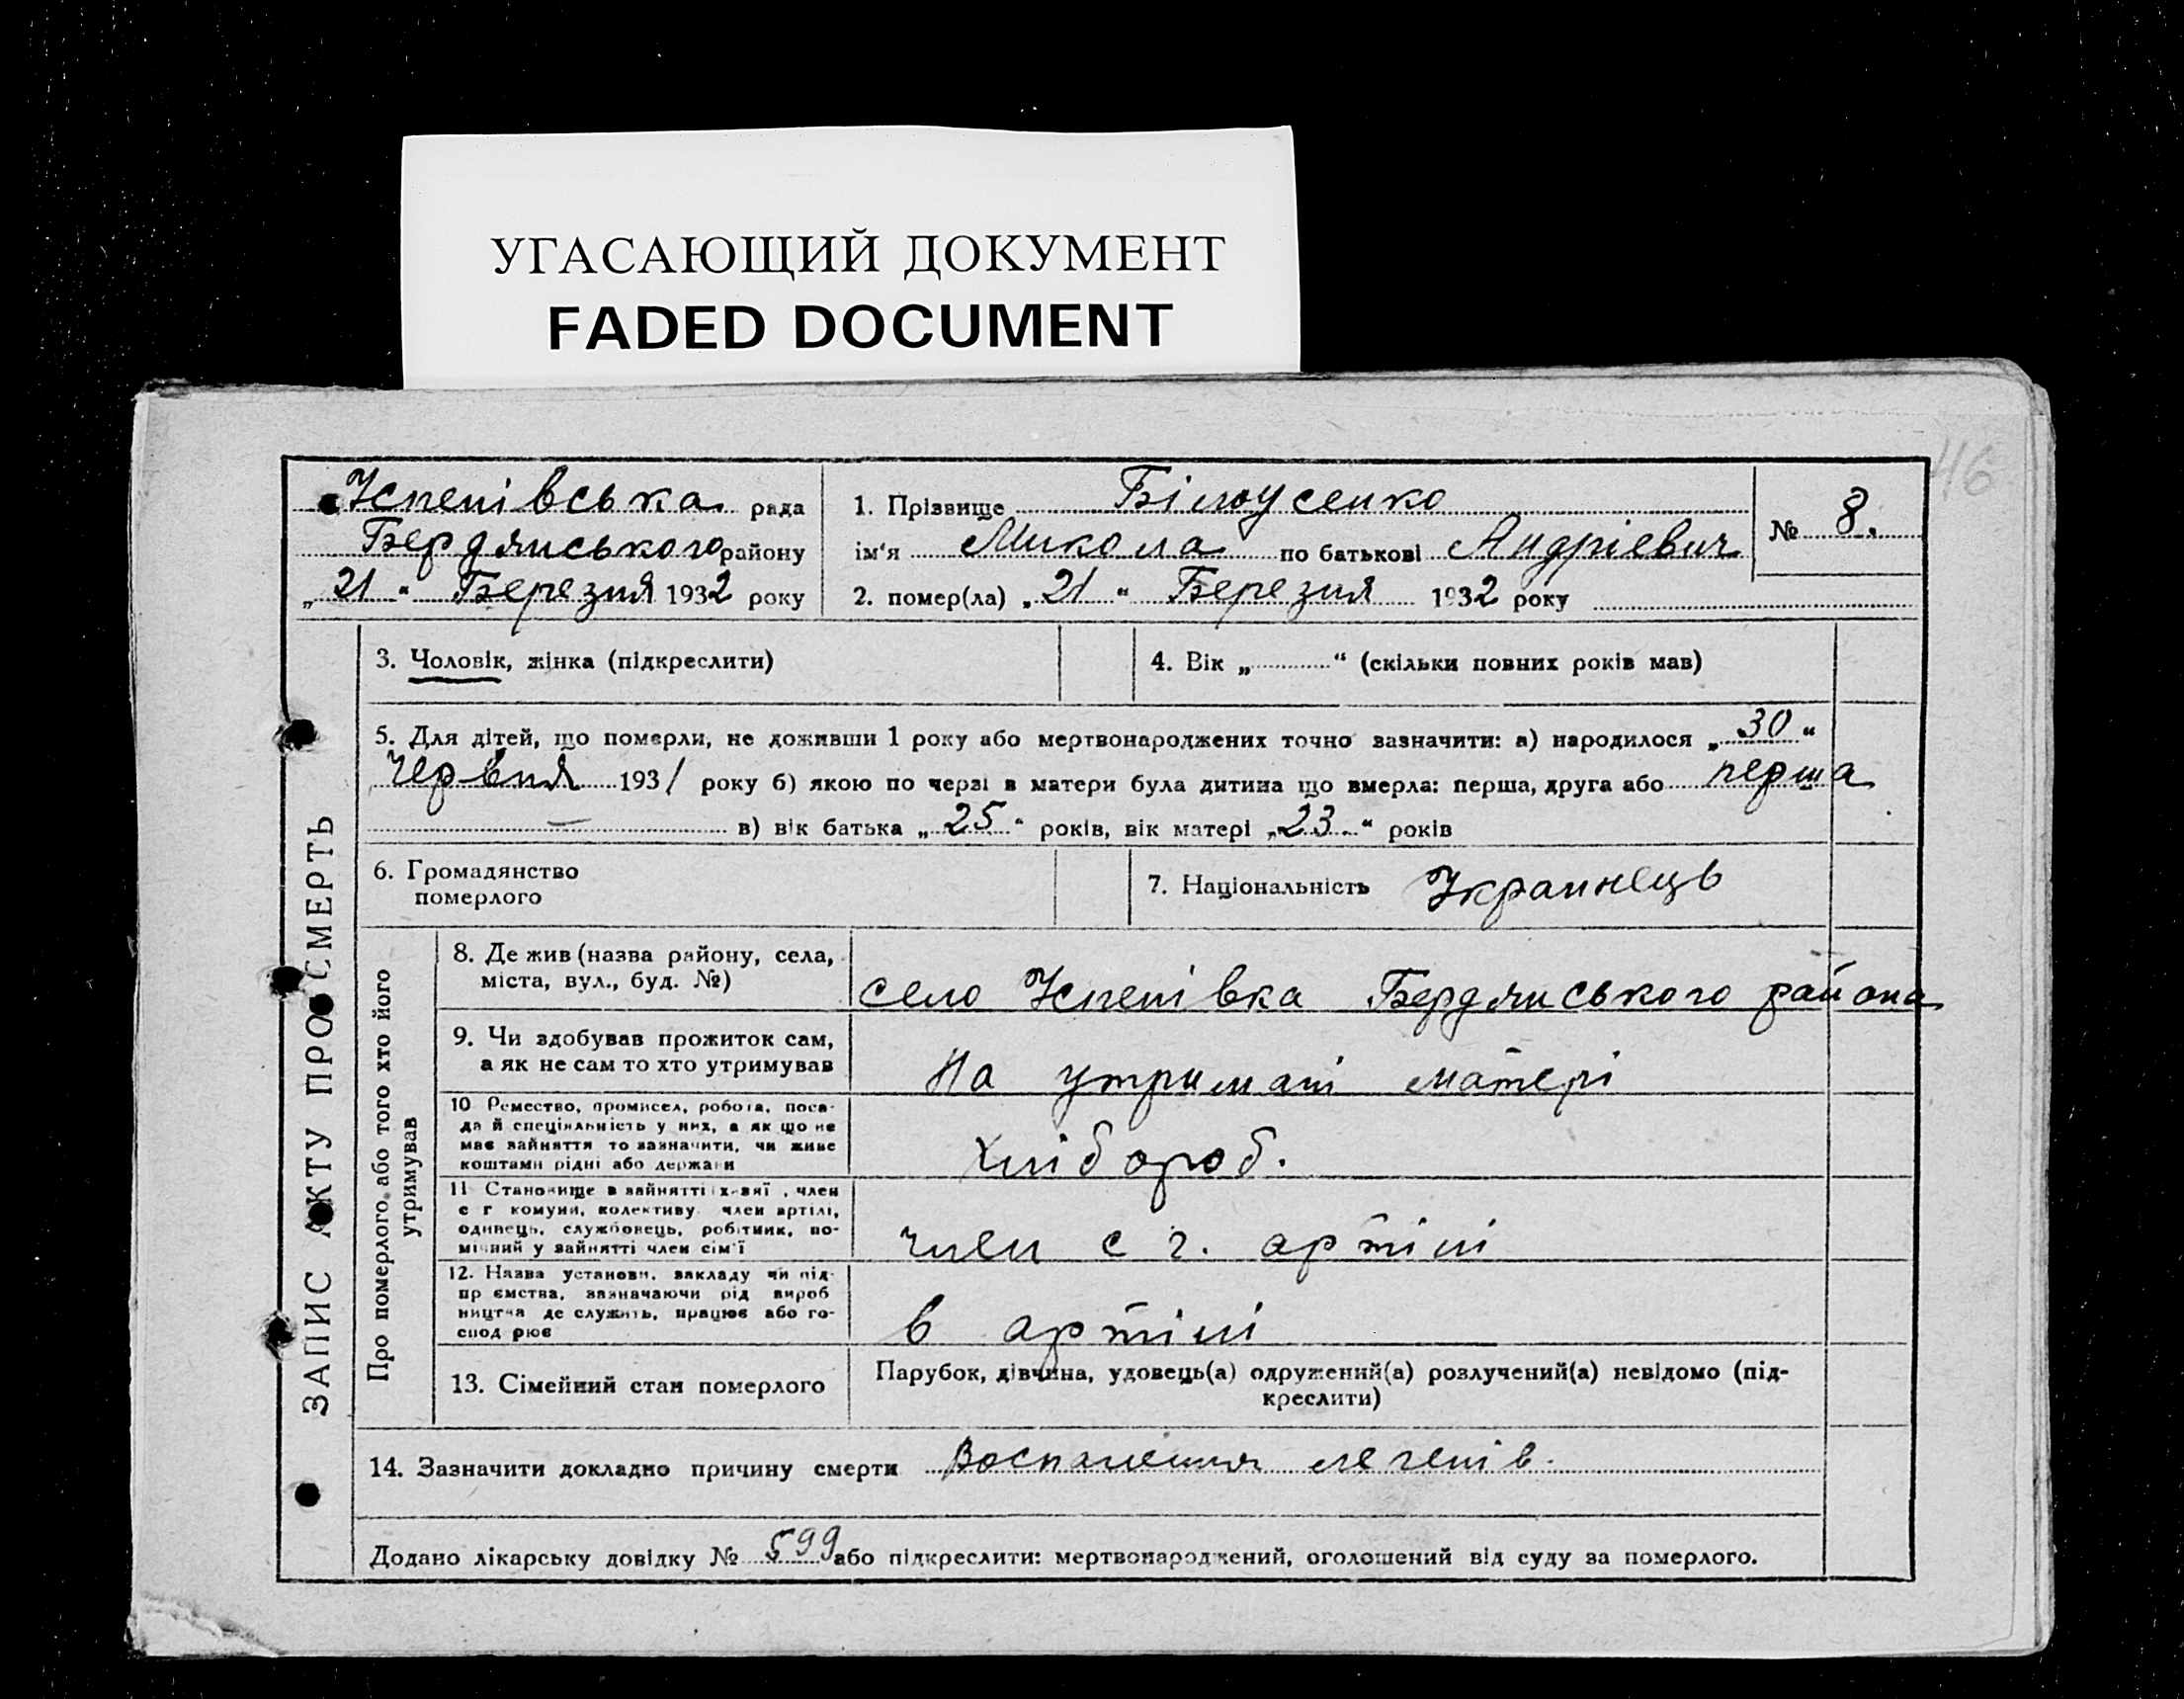 УГАСАЮЩИЙ ДОКУМЕНТ
FADED DOCUMENT
46
Успенівська рада
Бердянського району
„21“ Березня 1932 року
1. Прізвище Білоусенко
ім'я Микола по батькові Андрієвич
2. помер(ла) „21“ Березня 1932 року
№ 8.
ЗАПИС АКТУ ПРО СМЕРТЬ
3. Чоловік, жінка (підкреслити)
4. Вік „ “ (скільки повних років мав)
5. Для дітей, що померли, не доживши 1 року або мертвонароджених точно зазначити: а) народилося „30“
Червня 1931 року б) якою по черзі в матери була дитина що вмерла: перша, друга або перша
— в) вік батька „25“ років, вік матері „23“ років
6. Громадянство
померлого
7. Національність Украинець
Про померлого або того хто його
утримував
8. Де жив (назва району, села,
міста, вул., буд. №)
село Успенівка Бердянського района
9. Чи здобував прожиток сам,
а як не сам то хто утримував
На утримані матері
10 Ремество, промисел, робота, поса-
да й спеціяльність у них, а як що не
має зайняття то зазначити, чи живе
коштами рідні або держави
Хлібороб.
11 Становище в зайнятті: х-зяї , член
с г комуни, колективу член артілі,
одинець, службовець, робітник, по-
мічний у зайнятті член сім'ї
член с г. артілі
12. Назва установи, закладу чи під-
пр ємства, зазначаючи рід вироб
ництва де служить, працює або го-
спод рює
в артілі
13. Сімейний стан померлого
Парубок, дівчина, удовець(а) одружений(а) розлучений(а) невідомо (під-
креслити)
14. Зазначити докладно причину смерти Воспалення легенів.
Додано лікарську довідку № 599 або підкреслити: мертвонароджений, оголошений від суду за померлого.